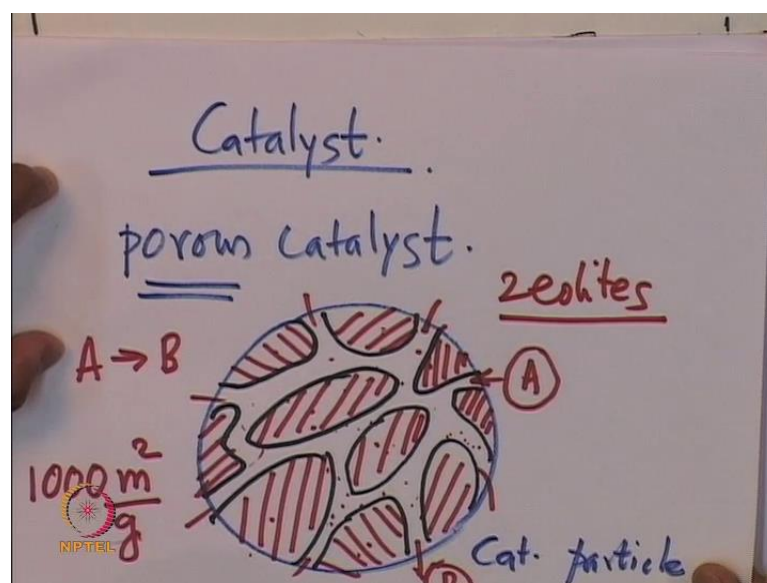 Catalyst.
porous catalyst.
zeolites
A → B
A
1000 m²/g
NPTEL
Cat. particle
B